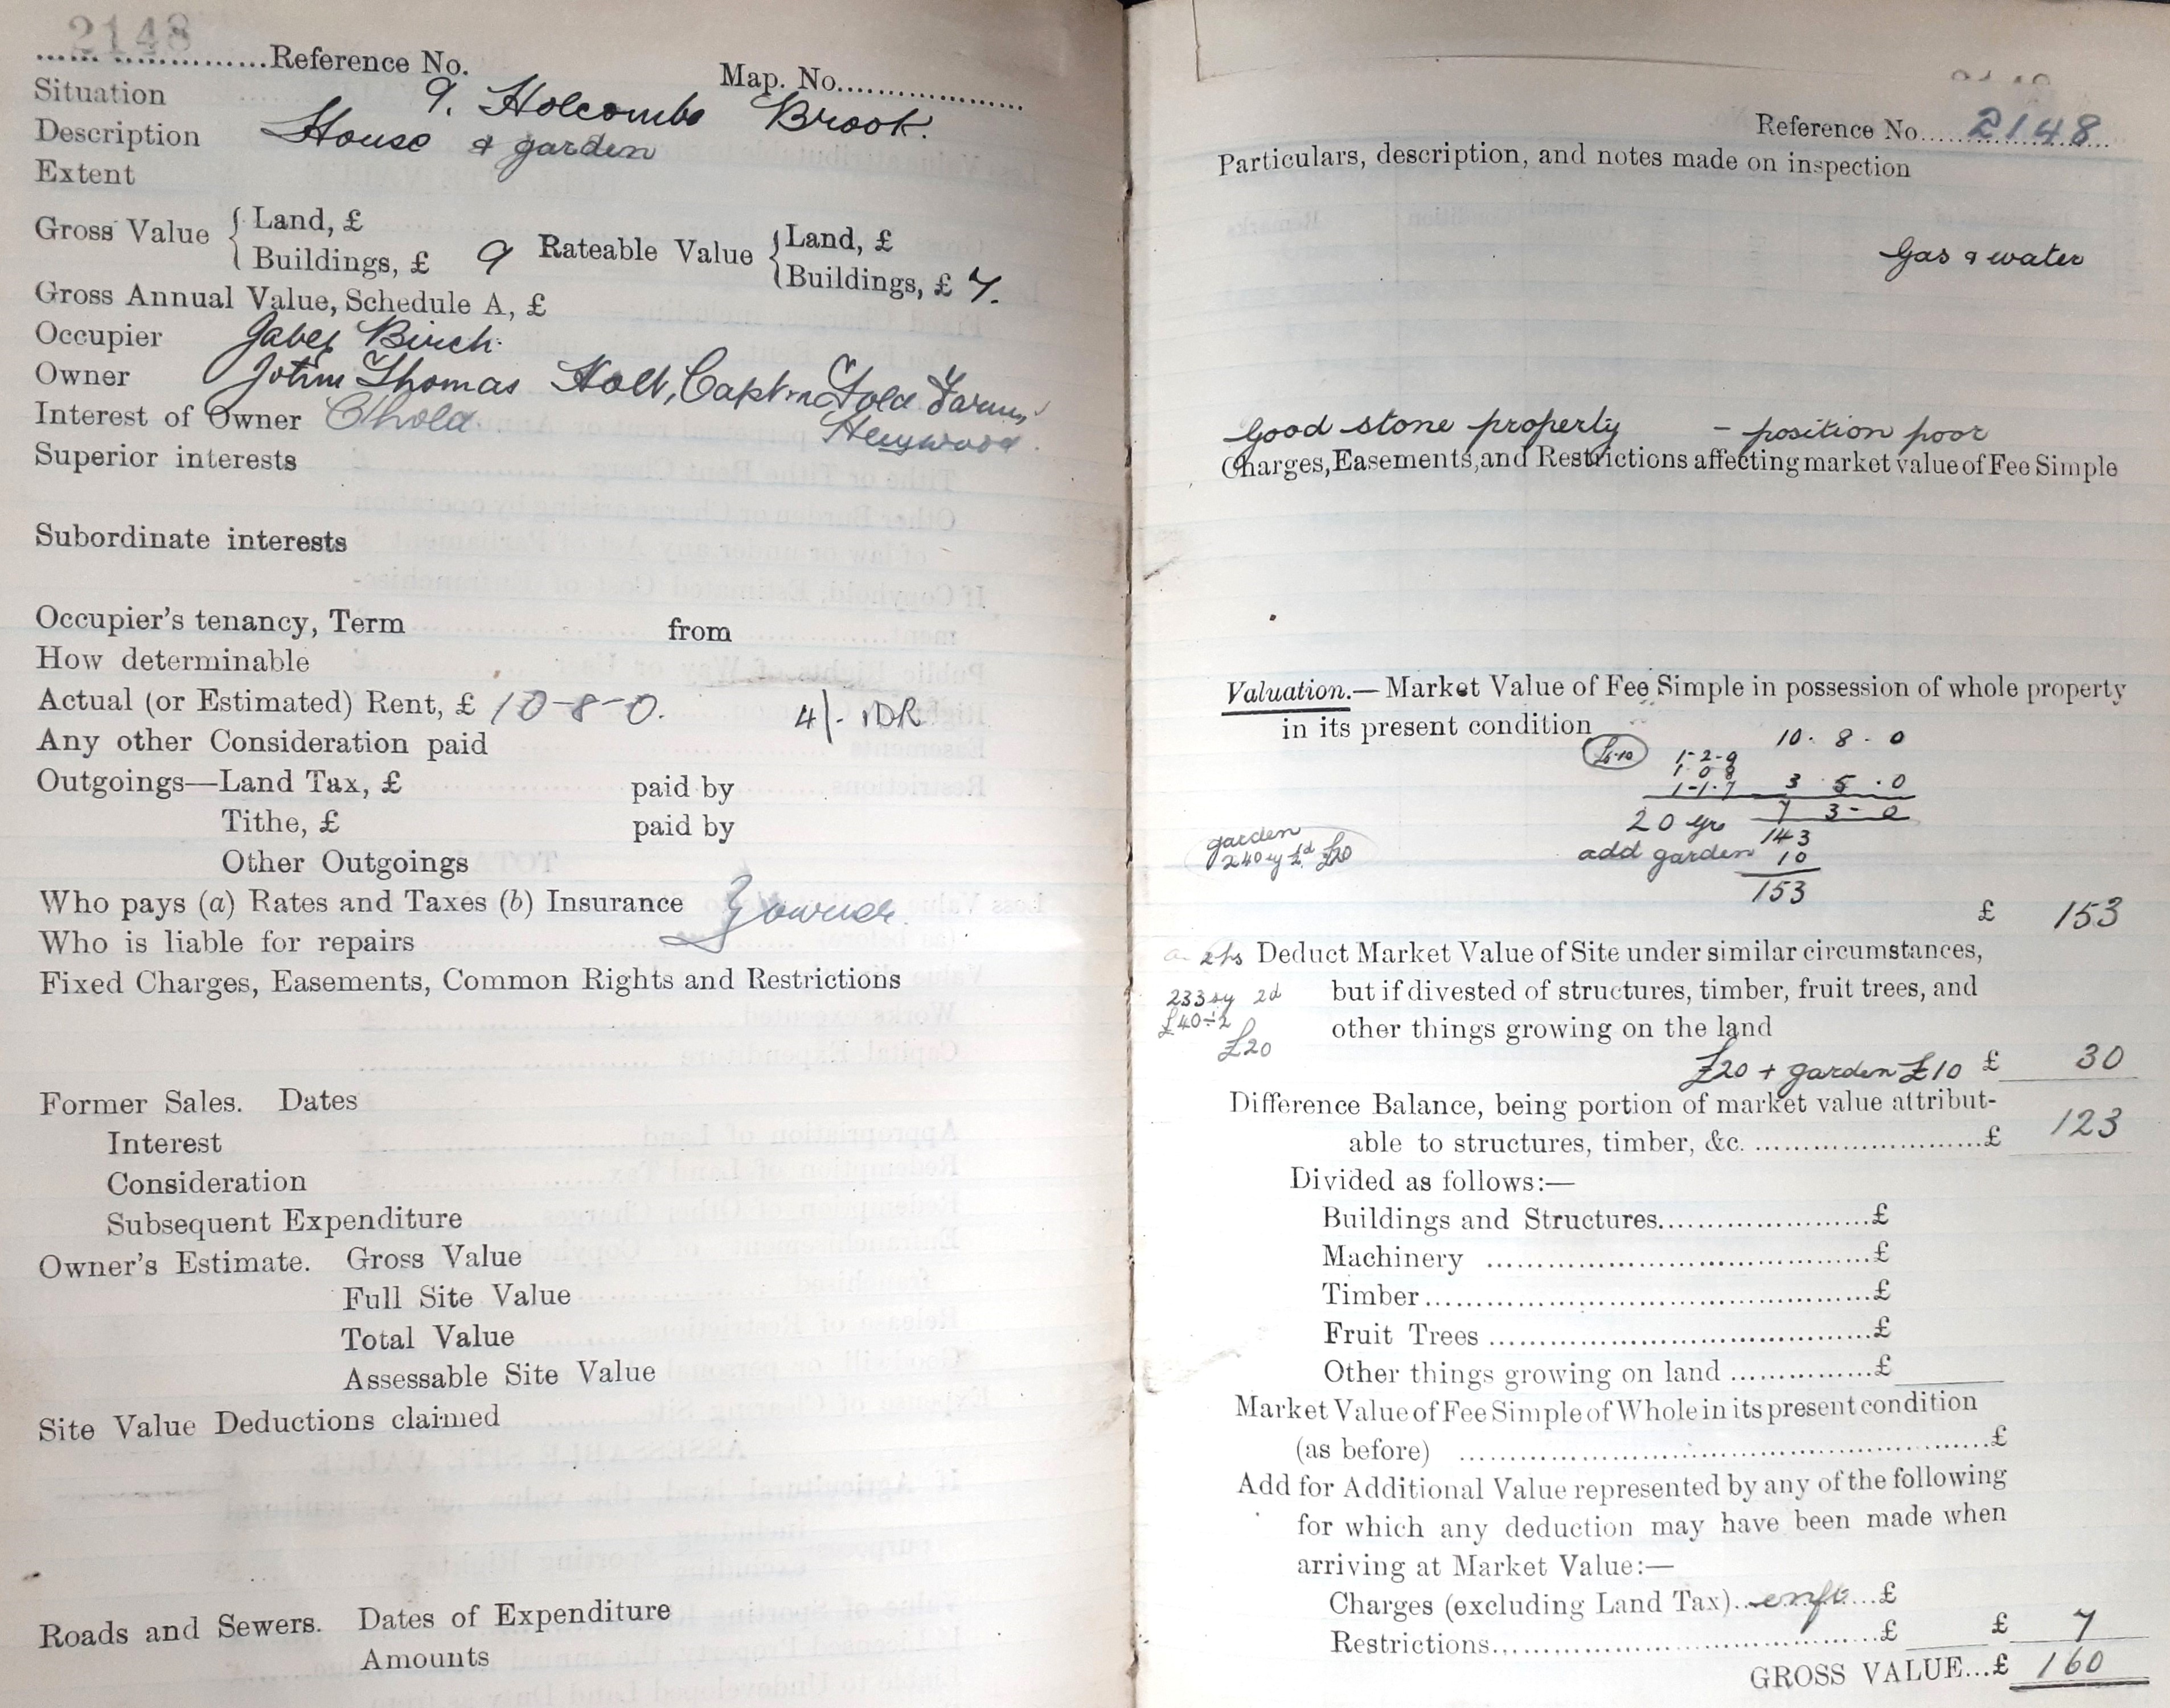 2148
Reference No. Map. No.
Situation 9. Holcombe Brook.
Description House & garden
Extent
Gross Value { Land, £
Buildings, £ 9 Rateable Value { Land, £
Buildings, £ 7.
Gross Annual Value, Schedule A, £
Occupier Jabez Birch.
Owner Thomas Holt, Fold Farm,
Heywood.
Interest of Owner Chold
Superior interests
Subordinate interests
Occupier's tenancy, Term from
How determinable
Actual (or Estimated) Rent, £ 10-8-0. 4/-
Any other Consideration paid
Outgoings—Land Tax, £ paid by
Tithe, £ paid by
Other Outgoings
Who pays (a) Rates and Taxes (b) Insurance } owner.
Who is liable for repairs
Fixed Charges, Easements, Common Rights and Restrictions
Former Sales. Dates
Interest
Consideration
Subsequent Expenditure
Owner's Estimate. Gross Value
Full Site Value
Total Value
Assessable Site Value
Site Value Deductions claimed
Roads and Sewers. Dates of Expenditure
Amounts
Reference No. 2148
Particulars, description, and notes made on inspection
Gas & water
Good stone property - position poor
Charges, Easements, and Restrictions affecting market value of Fee Simple
Valuation.—Market Value of Fee Simple in possession of whole property
in its present condition
10. 8. 0
1-2-9
1 0 8
1-1-7 3 5.0
7 3-0
20 yr 143
garden
£20
add garden 10
153
£ 153
Deduct Market Value of Site under similar circumstances,
233 sy 2d but if divested of structures, timber, fruit trees, and
£40÷2 other things growing on the land
£20
£20 + garden £10 £ 30
Difference Balance, being portion of market value attribut-
able to structures, timber, &c. £ 123
Divided as follows:—
Buildings and Structures £
Machinery £
Timber £
Fruit Trees £
Other things growing on land £
Market Value of Fee Simple of Whole in its present condition
(as before) £
Add for Additional Value represented by any of the following
for which any deduction may have been made when
arriving at Market Value:—
Charges (excluding Land Tax) enft. £
Restrictions £ £ 7
GROSS VALUE...£ 160